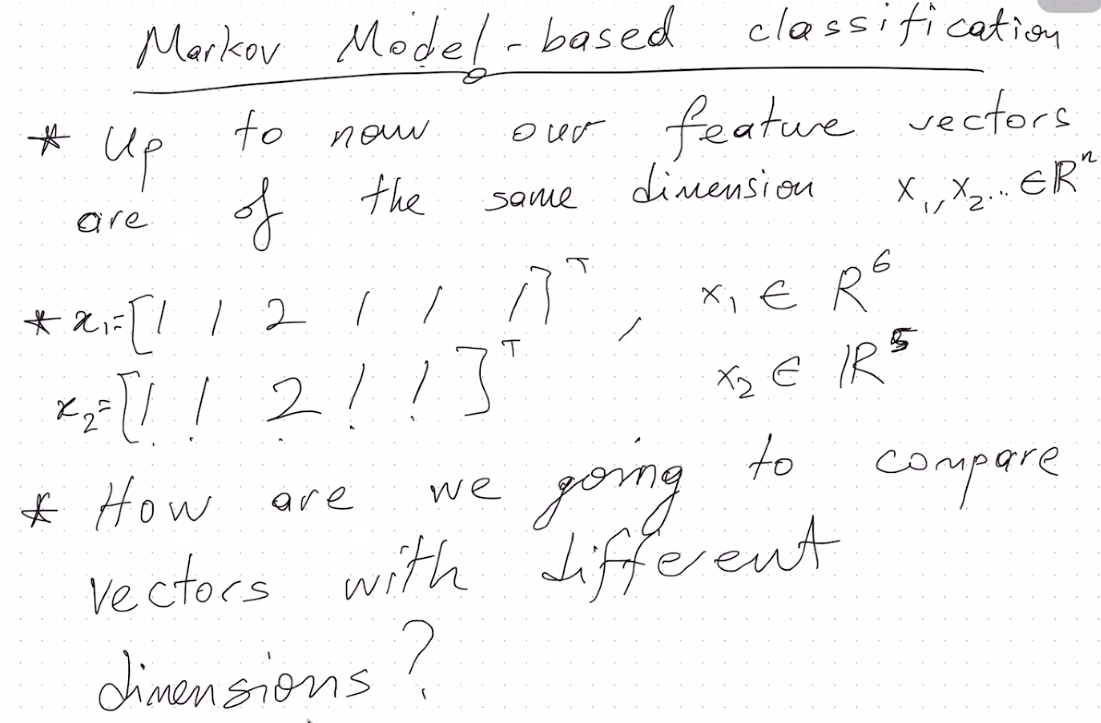 Markov Model-based classification
* Up to now our feature vectors
are of the same dimension x₁, x₂... ∈ Rⁿ
* x₁=[1 1 2 1 1 1]ᵀ, x₁ ∈ R⁶
x₂=[1 1 2 1 1]ᵀ x₂ ∈ ℝ⁵
* How are we going to compare
vectors with different
dimensions?